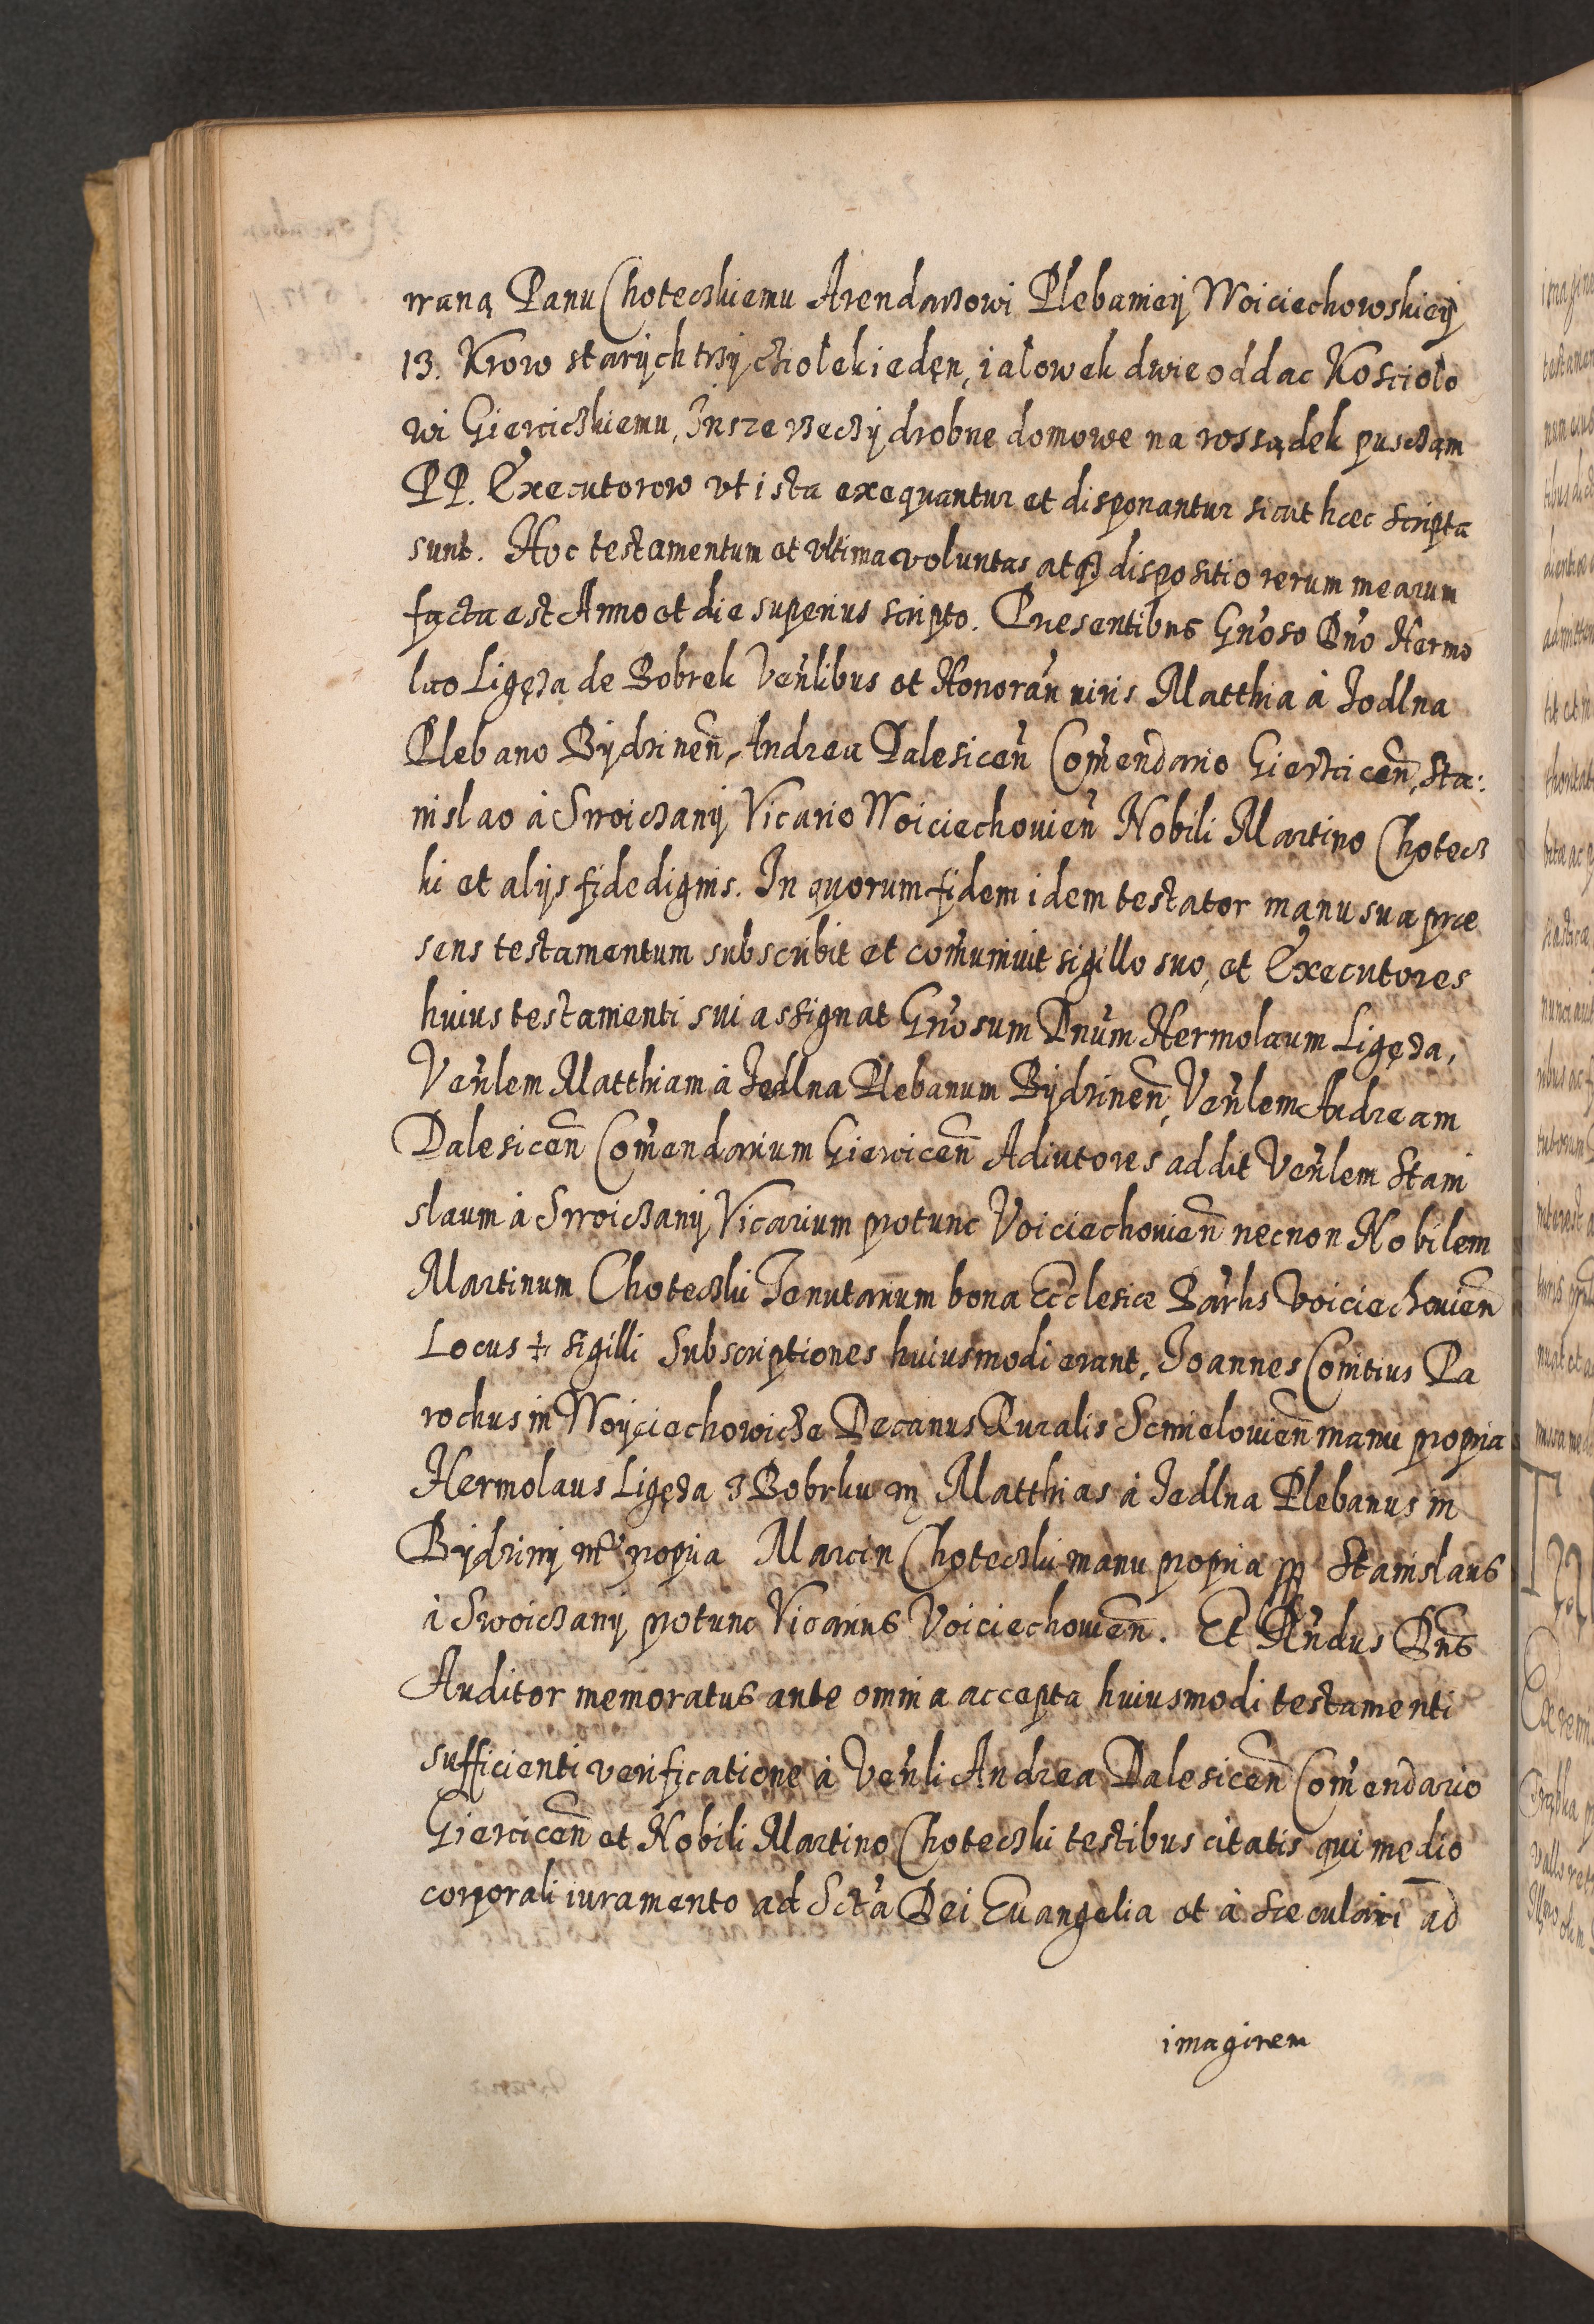 wana Panu Choteczkiemu Arendarzowi Plebaniey Woiciechowskiey
13. Krow starych trzy cziolek ieden, ialowek dwie oddac Kosciolo
wi Giercickiemu, Insze rzeczy drobne domowe na rossądek puszczam
PP. Executorow vt ista exequantur et disponantur sicut hæc scripta
sunt. Hoc testamentum et vltima voluntas atq3 dispositio rerum mearum
facta est Anno et die superius scripto. Presentibus Gn̄oso Dn̄o Hermo
lao Ligęza de Bobrek Ven̄libus et Honoran̄ viris Matthia à Jedlna
Plebano Bydzinen̄, Andrea Dalesicen̄ Com̄endario Gierzicen̄, Sta:
nislao à Swoiczany Vicario Woiciechouien̄ Nobili Martino Chotecz
ki et alijs fidedignis. In quorum fidem idem testator manu sua præ
sens testamentum subscribit et com̄uniuit sigillo suo, et Executores
huius testamenti sui assignat Gn̄osum Dn̄um Hermolaum Ligęza,
Ven̄lem Matthiam à Jedlna Plebanum Bydzinen̄, Ven̄lem Andream
Dalesicen̄ Com̄endarium Giercicen̄ Adiutores addit Ven̄lem Stani
slaum à Swoiczany Vicarium protunc Voiciechouien̄ necnon Nobilem
Martinum Choteczki Tenutarium bona Ecclesiæ Par̄lis Voiciechouien̄
Locus ✝ sigilli Subscriptiones huiusmodi erant, Joannes Comitius Pa
rochus in Woyciechowicze Decanus Ruralis Scmielouien̄ manu propria
Hermolaus Ligęza z Bobrku mp Matthias à Jedlna Plebanus in
Bydziny m̄u propria Marcin Choteczki manu propria pp Stanislaus
à Swoiczany protunc Vicarius Voiciechouien̄. Et R̄ndus Dn̄s
Auditor memoratus ante omnia accepta huiusmodi testamenti
sufficienti verificatione à Ven̄li Andrea Dalesicen̄ Com̄endario
Giercicen̄ et Nobili Martino Choteczki testibus citatis qui medio
corporali iuramento ad Sct̄a Dei Euangelia et à sæculari ad
imaginem